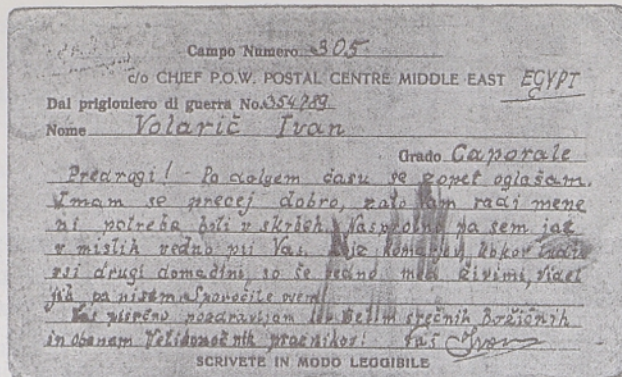 Campo Numero 305
c/o CHIEF P.O.W. POSTAL CENTRE MIDDLE EAST EGYPT
Dal prigioniero di guerra No. 354789
Nome Volarič Ivan
Grado Caporale
Predragi! - Po dolgem času se zopet oglašam.
Imam se precej dobro, zato Vam radi mene
ni potreba biti v skrbeh. Nasprotno pa sem jaz
v mislih vedno pri Vas. kakor tudi
vsi drugi domačini so še vedno med živimi, videl
jih pa nisem. Sporočite vsem!
Vas prisrčno pozdravljam in želim srečnih Božičnih
in obenem Velikonočnih praznikov! Vaš Ivan
SCRIVETE IN MODO LEGGIBILE